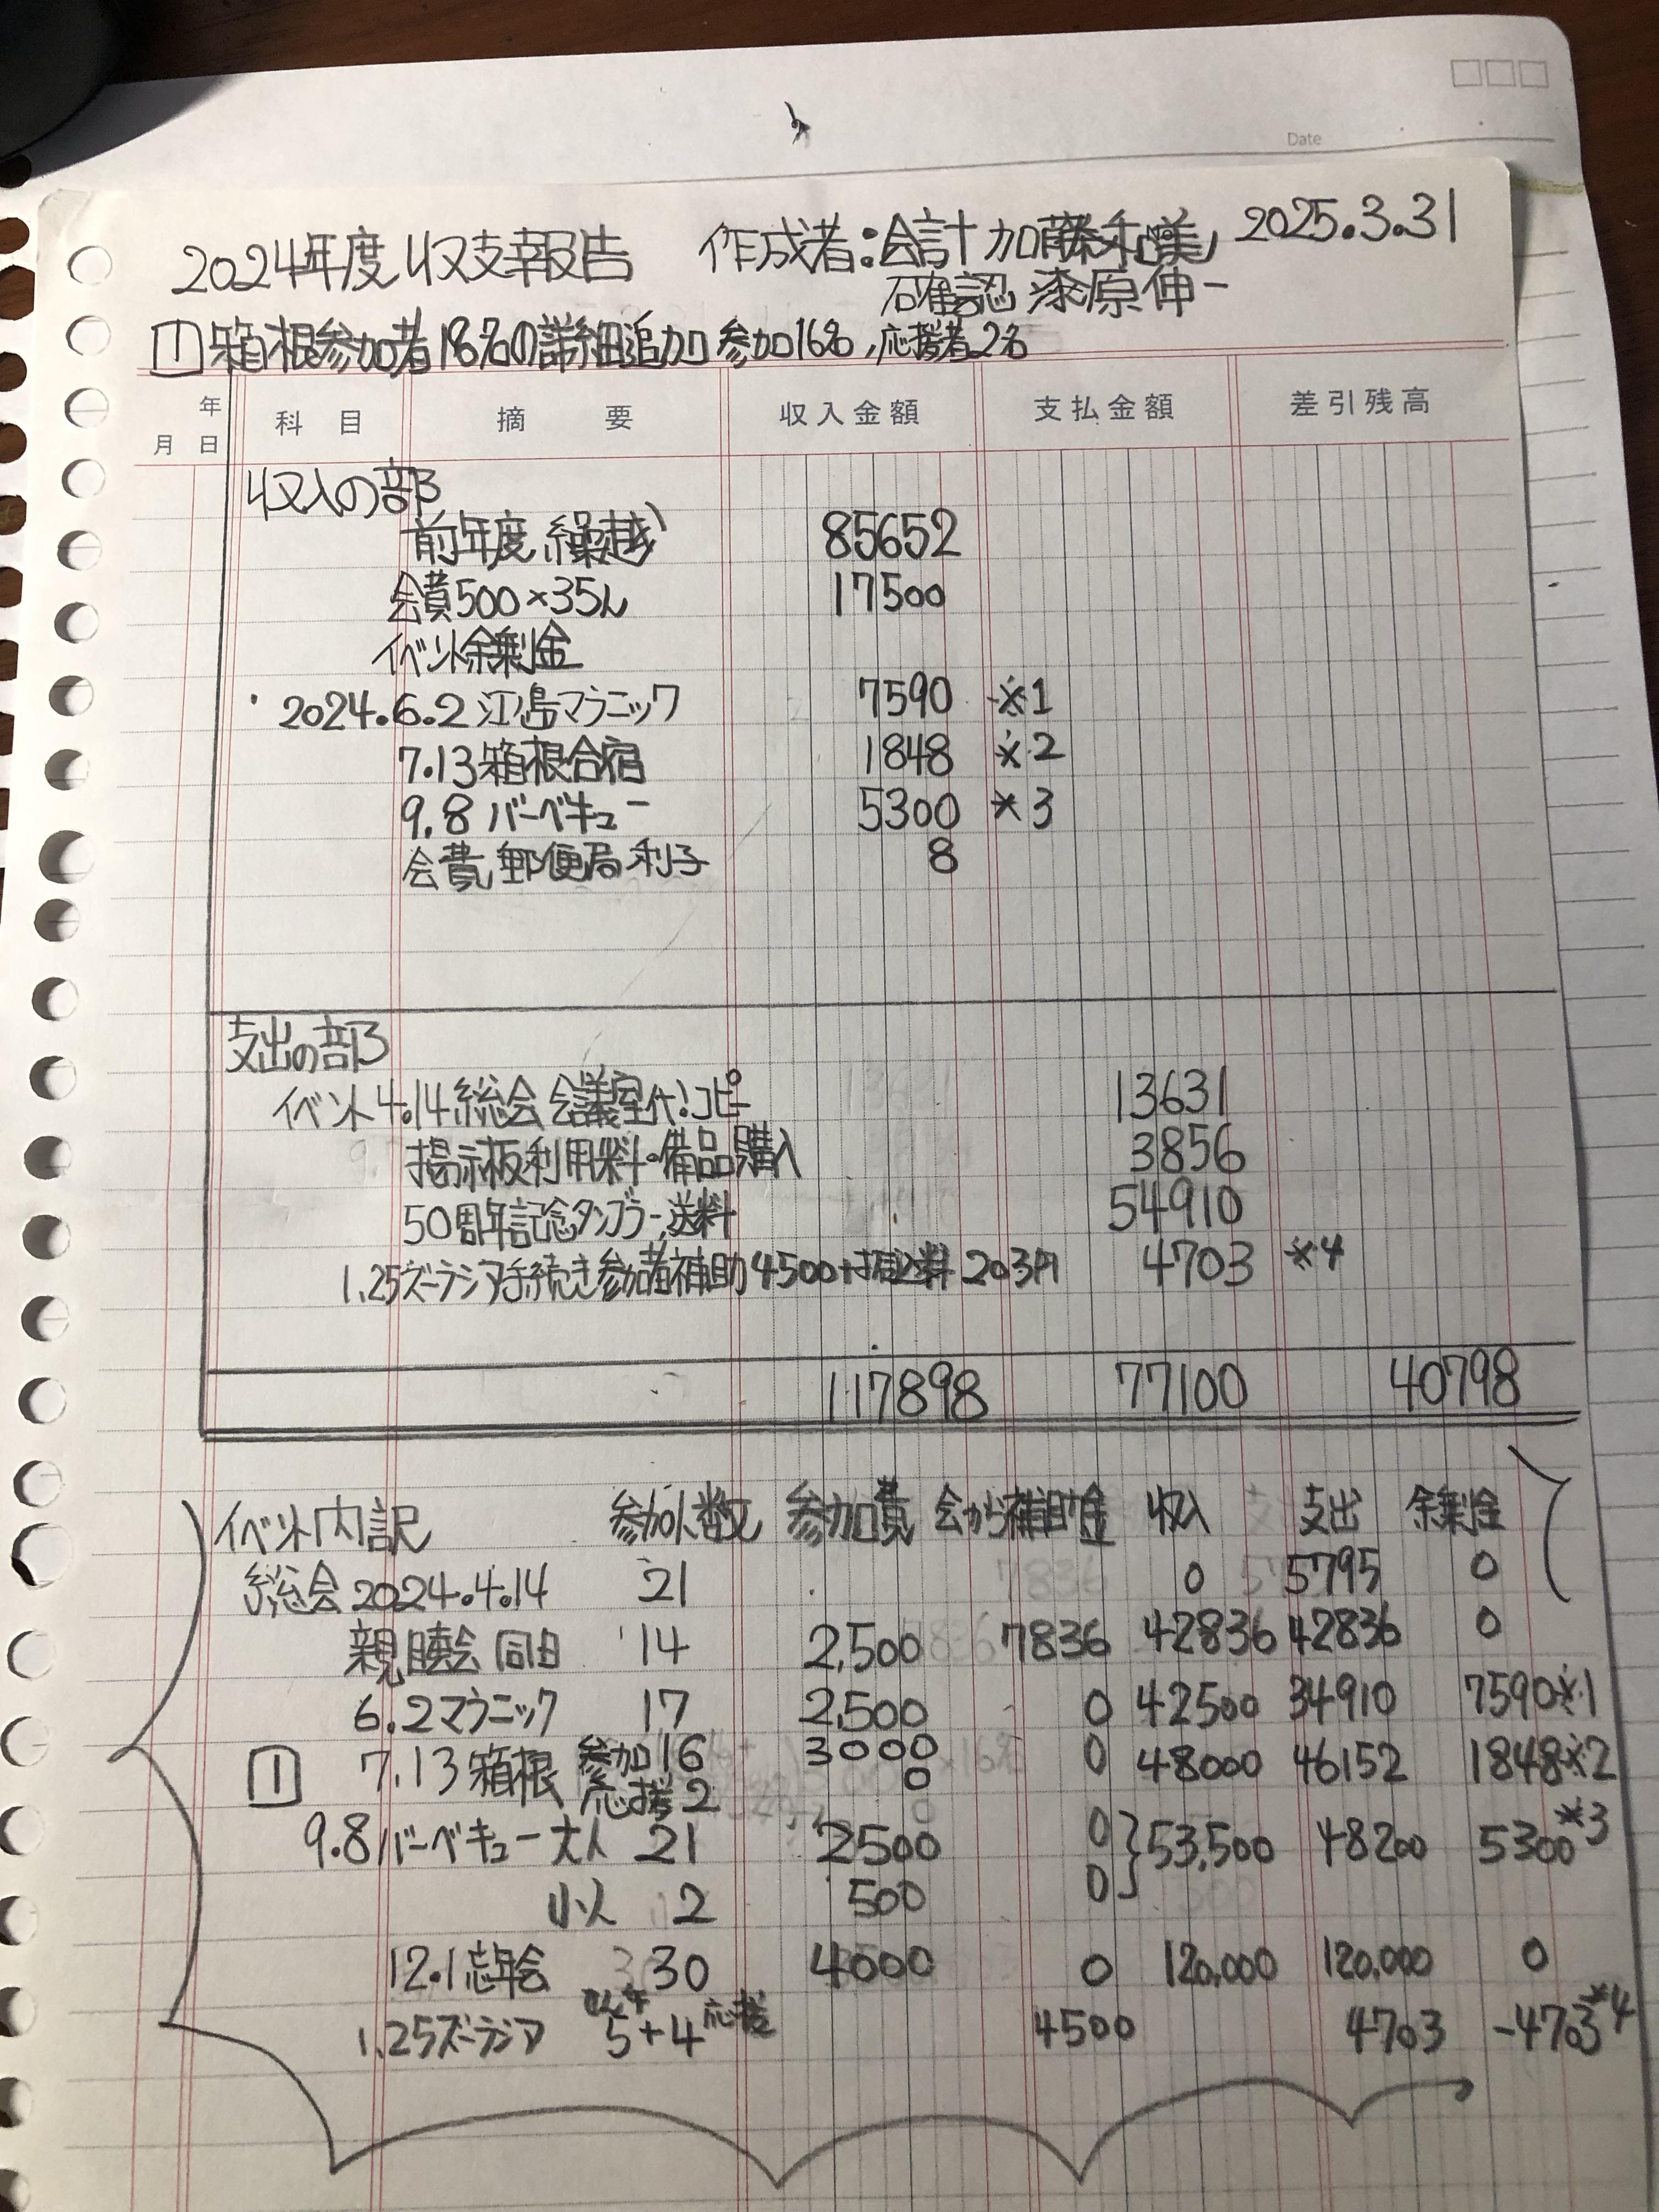 Date
2024年度収支報告 作成者:会計 加藤 2025.3.31
確認 漆原伸一
1 箱根参加者18名の詳細追加 参加16名,応援者2名
年
月 日 科 目 摘 要 収入金額 支払金額 差引残高
収入の部
前年度繰越 85652
会費500×35人 17500
イベント余剰金
2024.6.2江ノ島マラニック 7590 ※1
7.13箱根合宿 1848 ※2
9.8バーベキュー 5300 ※3
会費 郵便局利子 8
支出の部
イベント4.14総会 会議室代!コピー 13631
掲示板利用料・備品購入 3856
50周年記念タンブラー,送料 54910
1.25ズーラシア手続き参加者補助4500+振込料203円 4703 ※4
117898 77100 40798
イベント内訳 参加人数 参加費 会から補助金 収入 支出 余剰金
総会2024.4.14 21 0 5795 0
親睦会 同日 14 2,500 7836 42836 42836 0
6.2マラニック 17 2,500 0 42500 34910 7590※1
1 7.13箱根 参加16 3000 0 48000 46152 1848※2
応援2 0
9.8バーベキュー大人 21 2500 0 53,500 48200 5300※3
小人 2 500 0
12.1忘年会 30 4000 0 120,000 120,000 0
1.25ズーラシア 5+4 応援 4500 4703 -4703※4